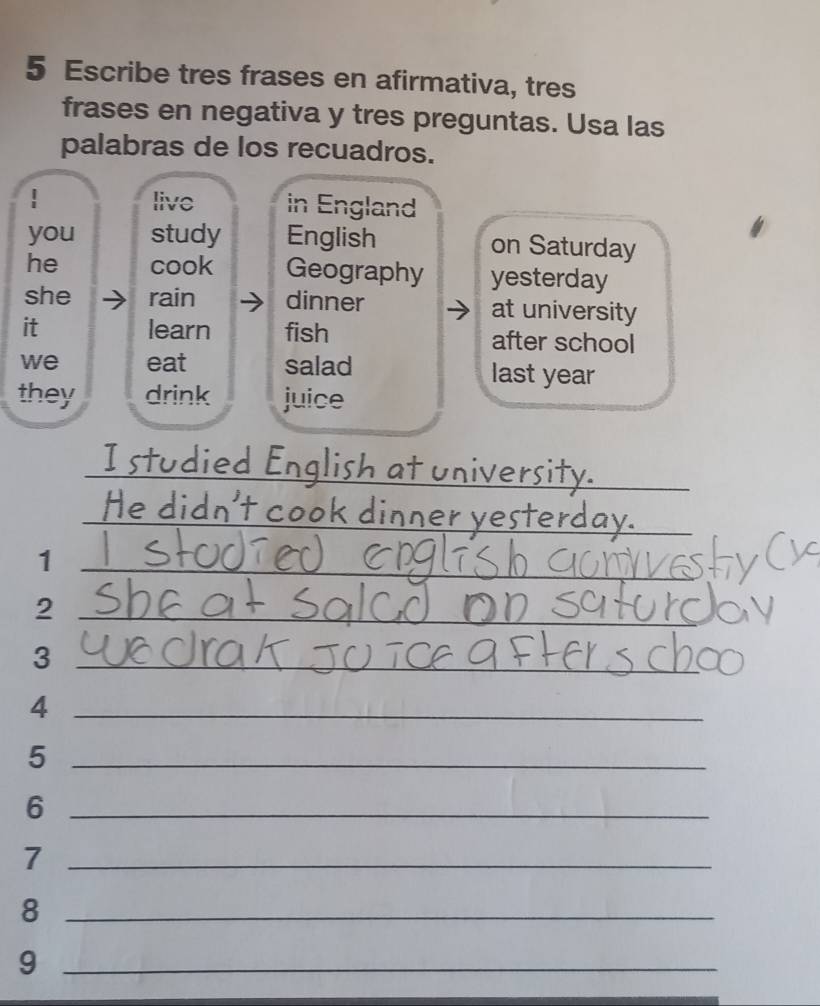 5 Escribe tres frases en afirmativa, tres
frases en negativa y tres preguntas. Usa las
palabras de los recuadros.
I
you
he
she
it
we
they
live
study
cook
rain
learn
eat
drink
in England
English
Geography
dinner
fish
salad
juice
on Saturday
yesterday
at university
after school
last year
I studied English at university.
He didn't cook dinner yesterday.
1 I studied english
2 she at salad on saturday
3 we drak juice after schoo
4
5
6
7
8
9